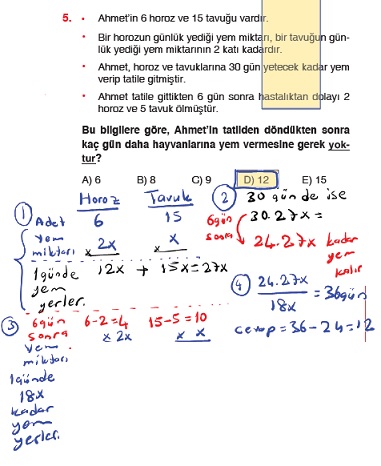 5. • Ahmet'in 6 horoz ve 15 tavuğu vardır.
• Bir horozun günlük yediği yem miktarı, bir tavuğun gün-
lük yediği yem miktarının 2 katı kadardır.
• Ahmet, horoz ve tavuklarına 30 gün yetecek kadar yem
verip tatile gitmiştir.
• Ahmet tatile gittikten 6 gün sonra hastalıktan dolayı 2
horoz ve 5 tavuk ölmüştür.
Bu bilgilere göre, Ahmet'in tatilden döndükten sonra
kaç gün daha hayvanlarına yem vermesine gerek yok-
tur?
A) 6 B) 8 C) 9 D) 12 E) 15
1 Horoz Tavuk
Adet 6 15
yem miktarı 2x x
x x
1 günde 12x + 15x = 27x
yem
yerler.
2 30 günde ise
30.27x =
6 gün
sonra 24.27x kadar
yem
kalır
3 6 gün 6-2=4 15-5=10
sonra x 2x x x
yem
miktarı
1 günde
18x
kadar
yem
yerler.
4 24.27x / 18x = 36 gün
cevap = 36 - 24 = 12